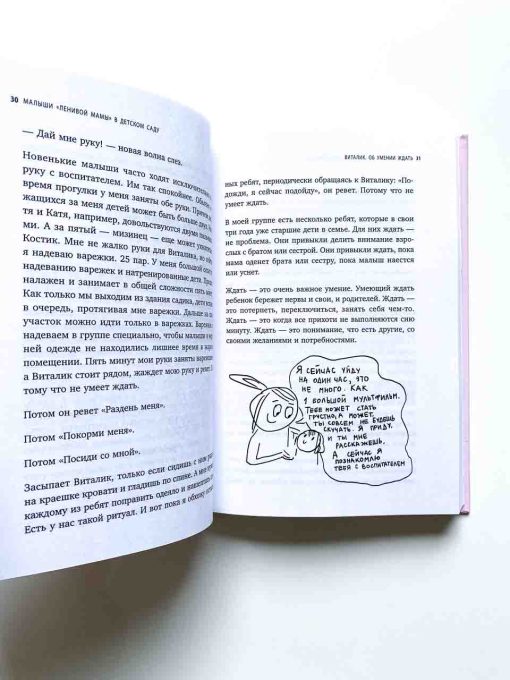 30 МАЛЫШИ «ЛЕНИВОЙ МАМЫ» В ДЕТСКОМ САДУ
— Дай мне руку! — новая волна слез.
Новенькие малыши часто ходят исключительно
руку с воспитателем. Им так спокойнее. Обычно
время прогулки у меня заняты обе руки. Причем
жащихся за меня детей может быть больше двух.
тя и Катя, например, довольствуются двумя
ми. А за пятый — мизинец — еще может
Костик. Мне не жалко руки для Виталика, но
я надеваю варежки. 25 пар. У меня большой опыт
надеванию варежек и натренированные дети.
налажен и занимает в общей сложности пять
Как только мы выходим из здания садика, дети
в очередь, протягивая мне варежки. Дальше на
участок можно идти только в варежках.
надеваем в группе специально, чтобы малыши в
ней одежде не находились лишнее время в
помещении. Пять минут мои руки заняты
а Виталик стоит рядом, жаждет мою руку и ревет.
тому что не умеет ждать.
Потом он ревет «Раздень меня».
Потом «Покорми меня».
Потом «Посиди со мной».
Засыпает Виталик, только если сидишь с ним
на краешке кровати и гладишь по спине. А мне
каждому из ребят поправить одеяло и
Есть у нас такой ритуал. И вот пока я обхожу
ВИТАЛИК. ОБ УМЕНИИ ЖДАТЬ 31
ных ребят, периодически обращаясь к Виталику: «По-
дожди, я сейчас подойду», он ревет. Потому что не
умеет ждать.
В моей группе есть несколько ребят, которые в свои
три года уже старшие дети в семье. Для них ждать —
не проблема. Они привыкли делить внимание взрос-
лых с братом или сестрой. Они привыкли ждать, пока
мама оденет брата или сестру, пока малыш наестся
или уснет.
Ждать — это очень важное умение. Умеющий ждать
ребенок бережет нервы и свои, и родителей. Ждать —
это потерпеть, переключиться, занять себя чем-то.
Ждать — это когда все прихоти не выполняются сию
минуту. Ждать — это понимание, что есть другие, со
своими желаниями и потребностями.
Я СЕЙЧАС УЙДУ
НА ОДИН ЧАС, ЭТО
НЕ МНОГО. КАК
1 БОЛЬШОЙ МУЛЬТФИЛЬМ.
ТЕБЕ МОЖЕТ СТАТЬ
ГРУСТНО, А МОЖЕТ,
ТЫ СОВСЕМ НЕ БУДЕШЬ
СКУЧАТЬ. Я ПРИДУ,
И ТЫ МНЕ
РАССКАЖЕШЬ.
А СЕЙЧАС Я
ПОЗНАКОМЛЮ
ТЕБЯ С ВОСПИТАТЕЛЕМ